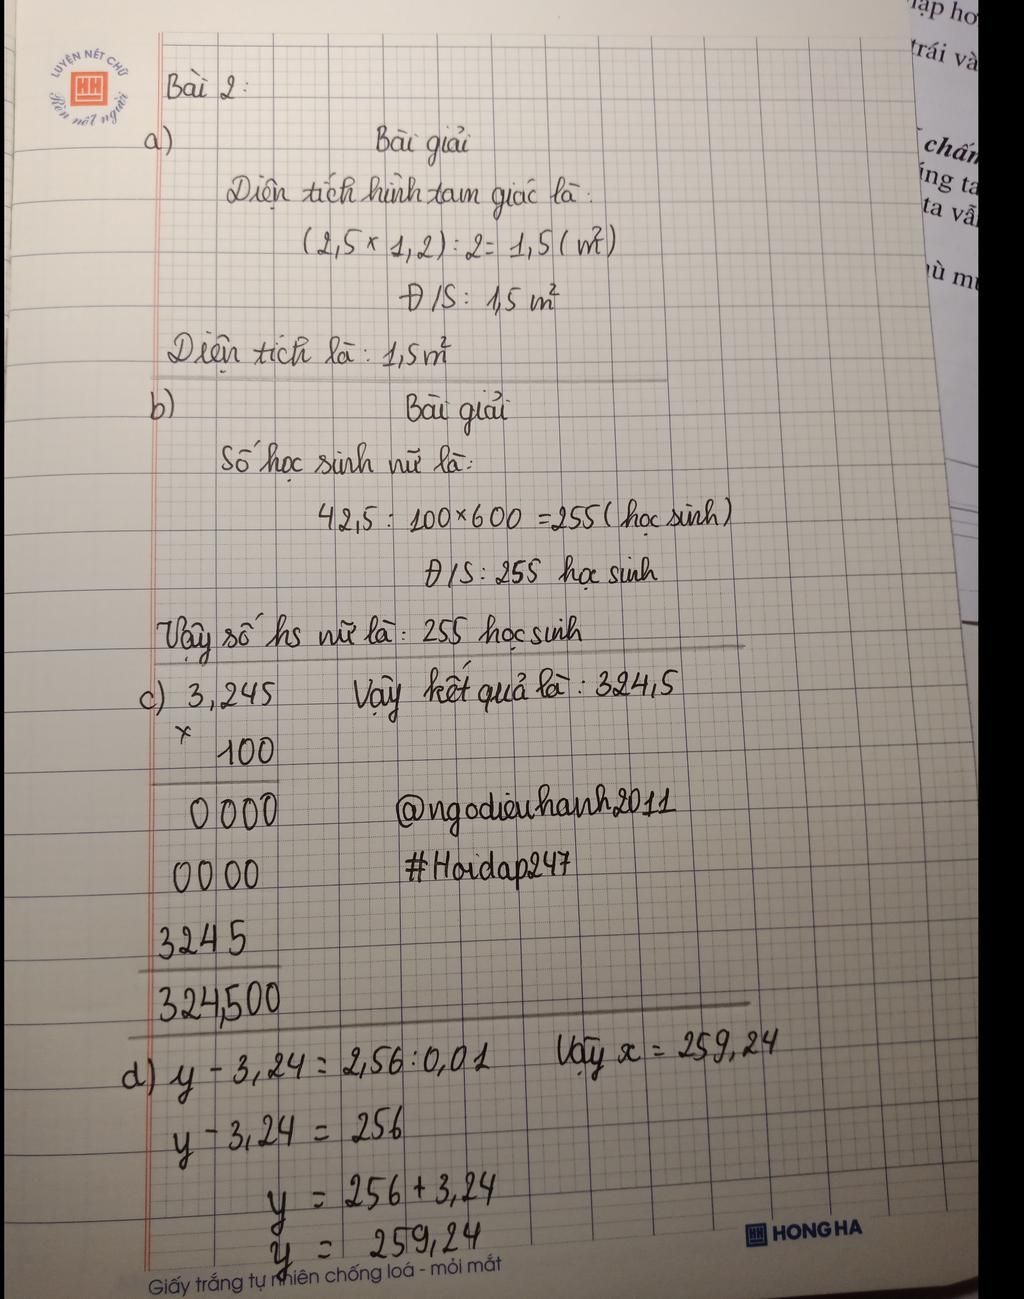 LUYỆN NÉT CHỮ
HH
Rèn nết người
Bài 2:
a) Bài giải
Diện tích hình tam giác là:
(2,5 × 1,2) : 2 = 1,5 (m²)
Đ/S: 1,5 m²
Diện tích là: 1,5 m²
b) Bài giải
Số học sinh nữ là:
42,5 : 100 × 600 = 255 (học sinh)
Đ/S: 255 học sinh
Vậy số hs nữ là: 255 học sinh
c) 3,245 Vậy kết quả là: 324,5
× 100
0000 @ngodieuhanh2011
0000 #Hoidap247
3245
324,500
d) y - 3,24 = 2,56 : 0,01 Vậy x = 259,24
y - 3,24 = 256
y = 256 + 3,24
y = 259,24
HH HONG HA
Giấy trắng tự nhiên chống loá - mỏi mắt
ập hơ
trái và
chấm
ing ta
ta vẫ
ù mụ